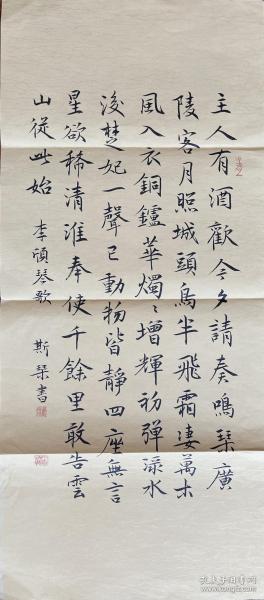 主人有酒歡今夕請奏鳴琹廣
陵客月照城頭烏半飛霜淒萬木
風入衣銅鑪華燭燭增輝初彈淥水
後楚妃一聲已動物皆靜四座無言
星欲稀清淮奉使千餘里敢告雲
山從此始 李頎琴歌 斯琹書